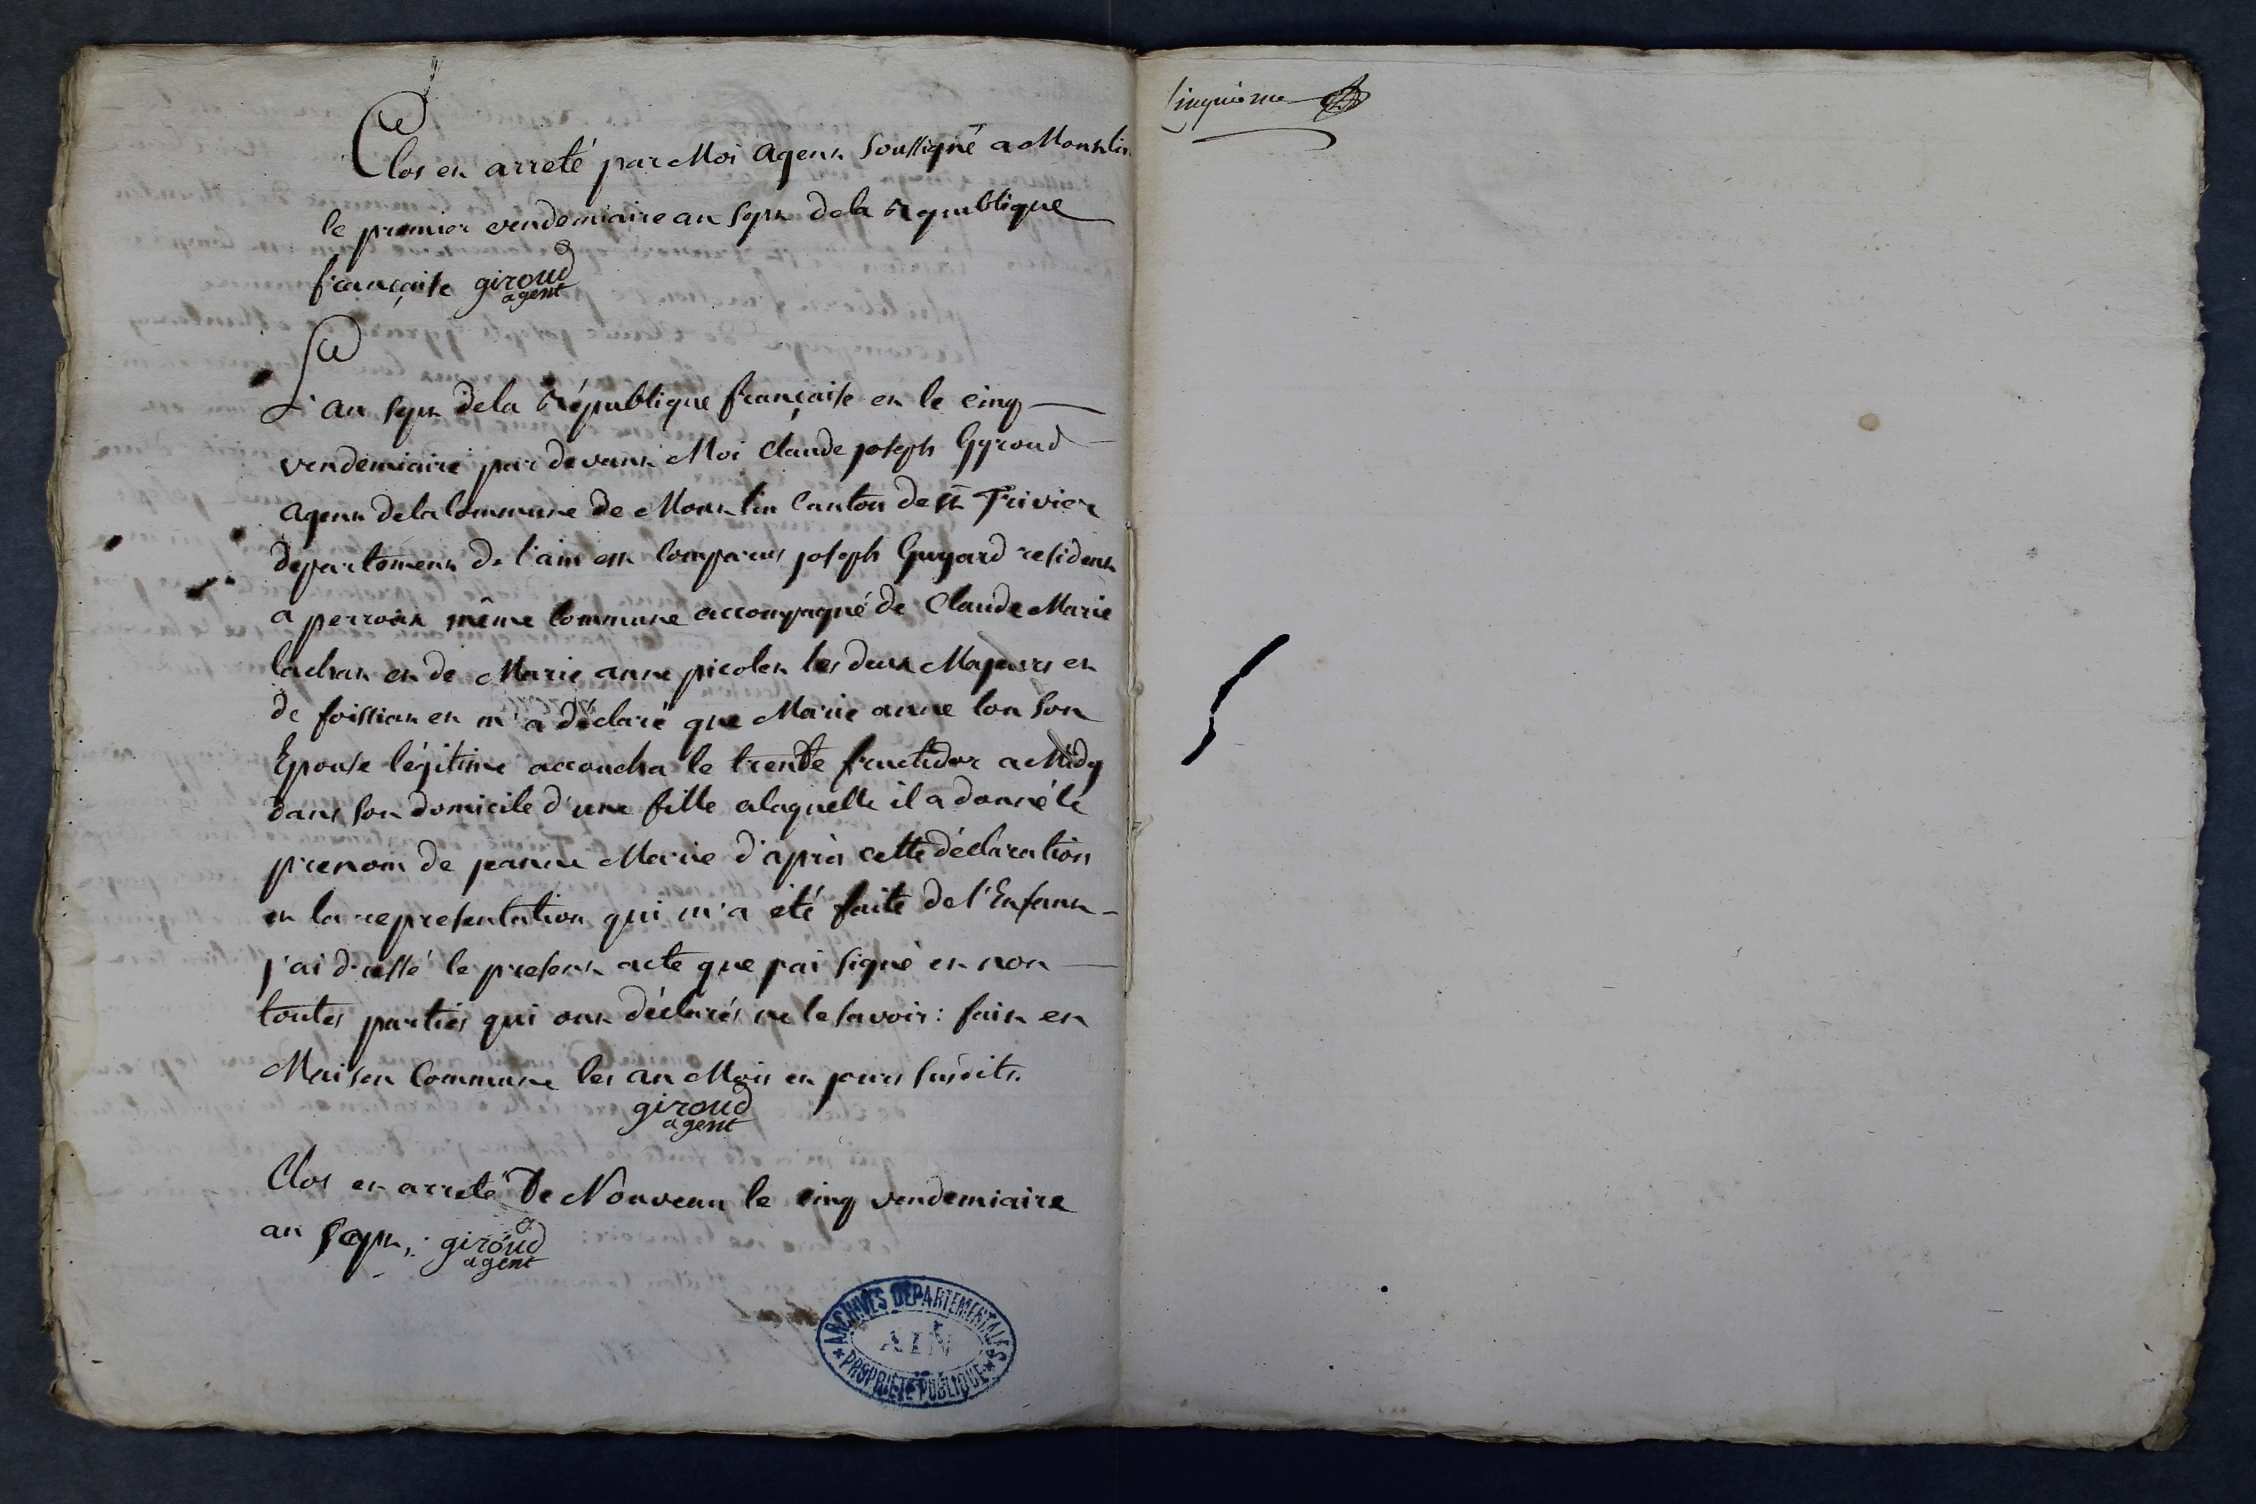 Clos et arreté par Moi agent Soussigné a Montlin
le premier vendemiaire an sept dela republique
française giroud
agent
L'an sept dela République française et le cinq
vendemiaire par devant Moi Claude joseph Gyroud
agent dela Commune de Montlin Canton de st Trivier
departement de l'ain est Comparus joseph Guyard resident
a perroux même Commune accompagné de Claude Marie
lachat et de Marie anne picolet les deux Majeurs et
de foissiat et m'a déclaré que Marie anne lon son
Epouse légitime accoucha le trente fructidor a Midy
dans son domicile d'une fille alaquelle il a donné le
prenom de jeanne Marie d'après cette déclaration
et la representation qui m'a été faite de l'Enfant
j'ai dressé le present acte que j'ai signé et non
toutes parties qui ont déclarés ne le savoir : fait en
Maison Commune les an Mois et jours susdits.
giroud
agent
Clos et arreté De Nouveau le cinq vendemiaire
an Sept, : giroud
agent
ARCHIVES DEPARTEMENTALES
AIN
* PROPRIETE PUBLIQUE *
Cinquieme